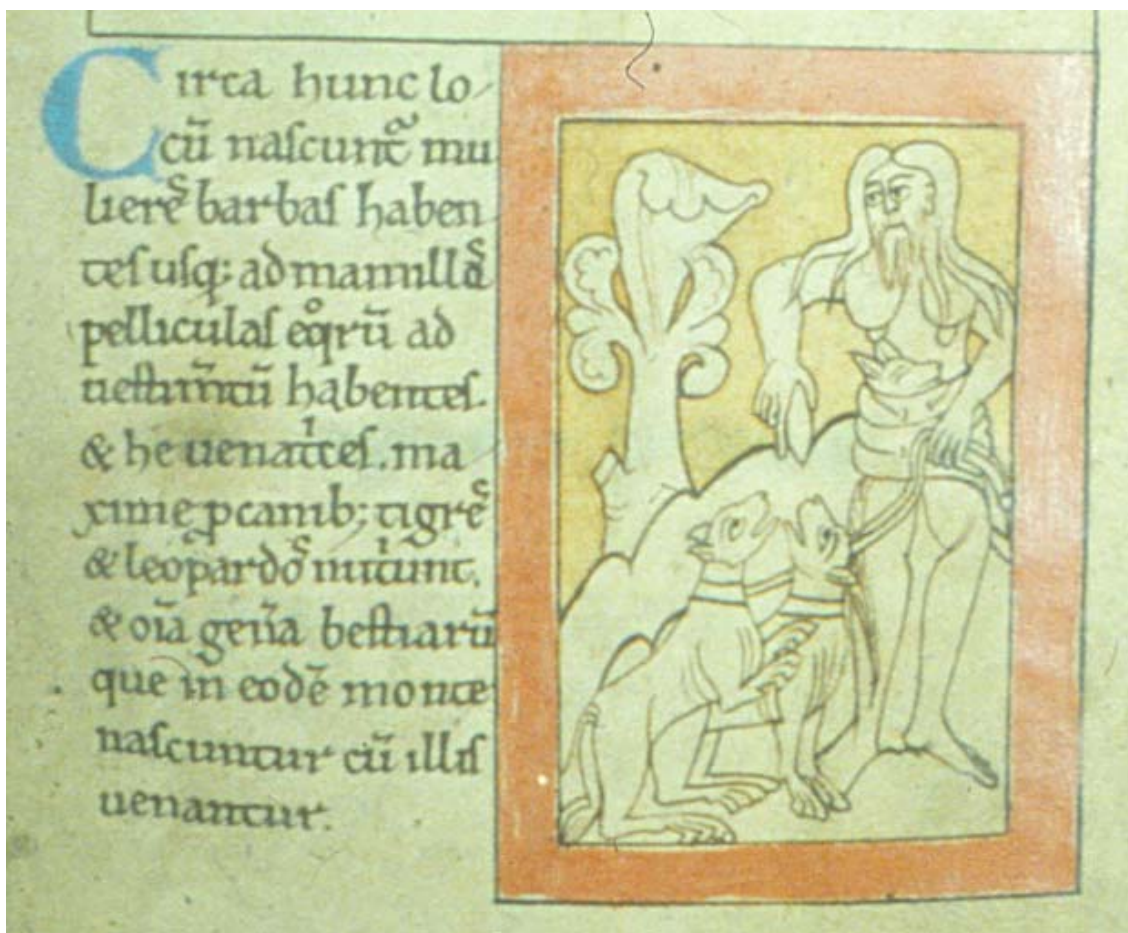 Circa hunc lo
cū naſcunt᷑ mu
liereſ barbaſ haben
teſ uſq; ad mamillaſ
pelliculaſ eq̊rū ad
ueſtim̄tū habenteſ.
& he uenatͥceſ. ma
xime ꝑ canib; tigreſ
& leopardoſ
& oīa gen̄a beſtiarū
que in eodē monte
naſcuntur cū illiſ
uenantur.